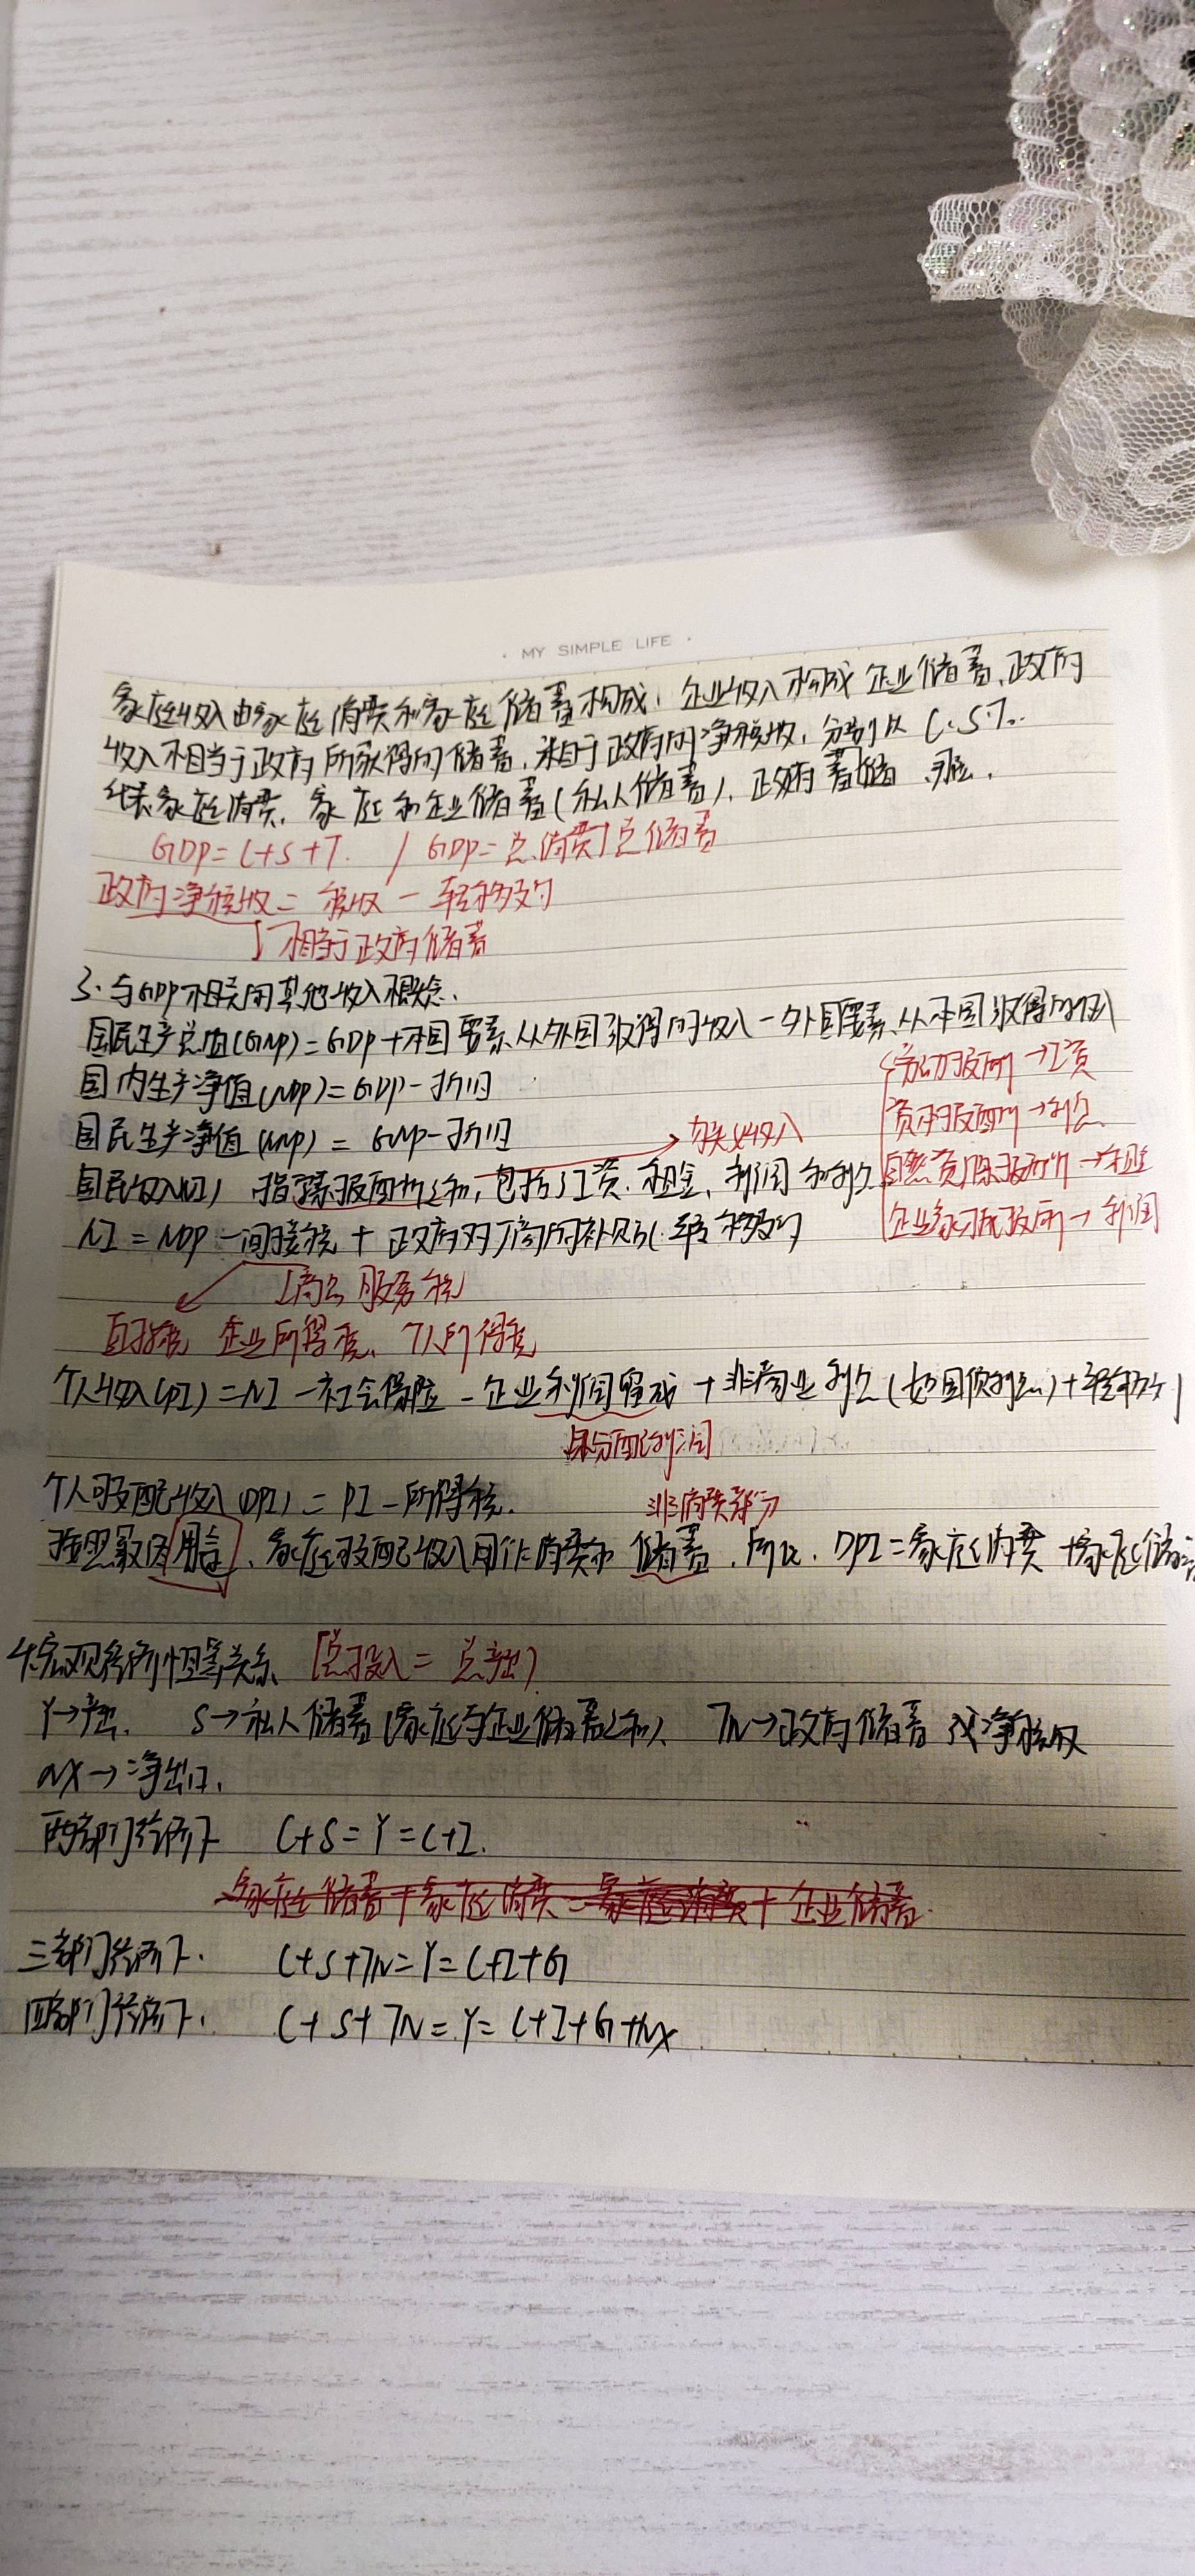 · MY SIMPLE LIFE ·
家庭收入由家庭消费和家庭储蓄构成，企业收入构成企业储蓄，政府
收入相当于政府所获得的储蓄，来自于政府的净税收，分别以 C.S.T.
代表家庭消费，家庭和企业储蓄(私人储蓄)，政府蓄储
GDP=C+S+T. / GDP=总消费+总储蓄
政府净税收= 税收 - 转移支付
相当于政府储蓄
3. 与GDP相关的其他收入概念.
国民生产总值(GNP)=GDP+本国要素从外国取得的收入-外国要素从本国取得的收入
劳动报酬→工资
国内生产净值(NDP)=GDP-折旧
资本报酬→利息
国民生产净值(NNP) = GNP-折旧
要素收入
国民收入(NI) 指要素报酬之和, 包括了工资.租金、利润和利息
自然资源报酬→租金
NI = NDP -间接税 + 政府对厂商的补贴(转移支付
企业家才能报酬→利润
商品服务税
直接税 企业所得税、个人所得税
个人收入(PI)=NI -社会保险 - 企业利润留成 + 非商业利息(如国债利息)+转移支付
未分配的利润
个人可支配收入(DPI) = PI -所得税.
非消费部分
按照最终用途、家庭可支配收入用作消费和储蓄.所以. DPI=家庭消费+家庭储蓄
4.宏观经济恒等关系 [总投入= 总产出]
Y→产出. S→私人储蓄(家庭与企业储蓄之和). TN→政府储蓄或净税收
NX→净出口.
两部门经济下 C+S=Y=C+I.
家庭储蓄+家庭消费=家庭消费+企业储蓄.
三部门经济下. C+S+TN=Y=C+I+G
四部门经济下. C+S+TN=Y=C+I+G+NX